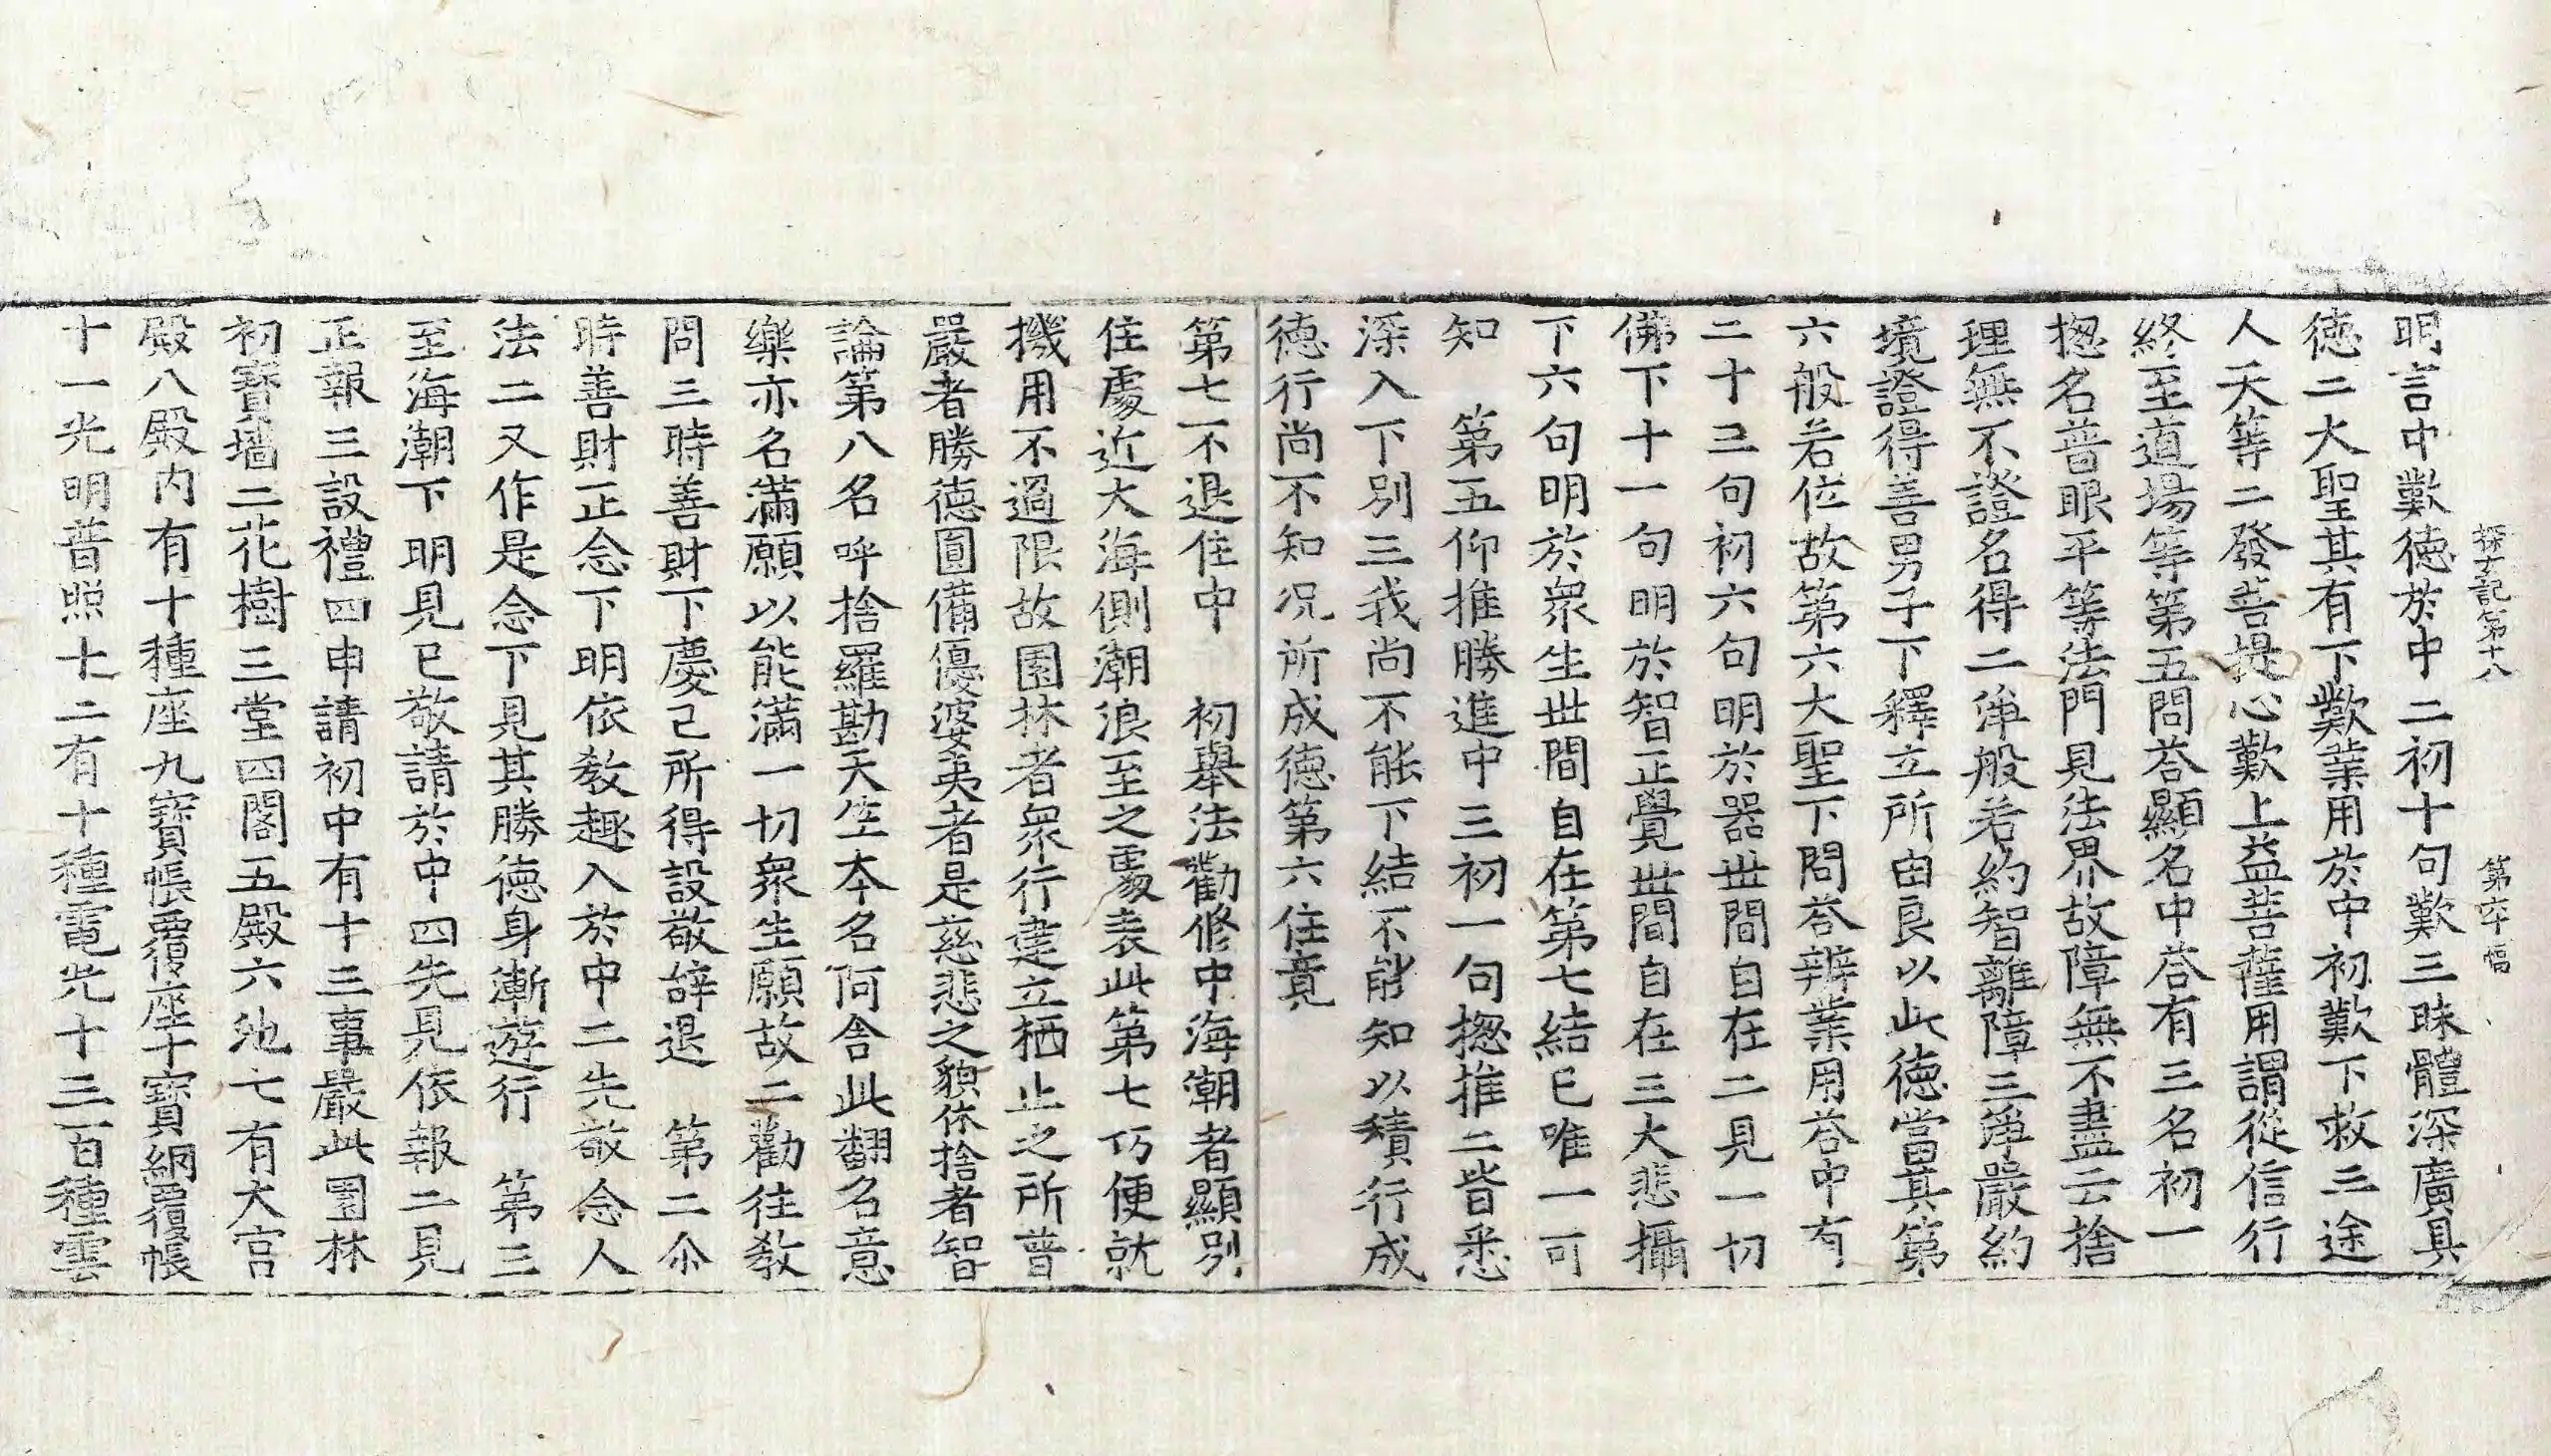 探玄記第十八　第六幅
明言中歎德於中二初十句歎三昧體深廣具
德二大聖其有下歎業用於中初歎下救三途
人天等二發菩提心歎上益菩薩用謂從信行
終至道場等第五問荅顯名中荅有三名初一
揔名普眼平等法門見法界故障無不盡云捨
理無不證名得二淨般若約智離障三淨嚴約
境證得善男子下釋立所由良以此德當其第
六般若位故第六大聖下問荅辨業用荅中有
二十三句初六句明於器世間自在二見一切
佛下十一句明於智正覺世間自在三大悲攝
下六句明於衆生世間自在第七結已唯一可
知　第五仰推勝進中三初一句揔推二皆悉
深入下別三我尚不能下結不能知以積行成
德行尚不知况所成德第六住竟
第七不退住中　初舉法勸修中海潮者顯別
住處近大海側潮浪至之處表此第七巧便就
機用不過限故園林者衆行建立栖止之所普
嚴者勝德圓備優婆夷者是慈悲之貌休捨者智
論第八名呼捨羅勘天竺本名阿舍此翻名意
樂亦名滿願以能滿一切衆生願故二勸往敎
問三時善財下慶己所得設敬辞退　第二尒
時善財正念下明依敎趣入於中二先敬念人
法二又作是念下見其勝德身漸遊行　第三
至海潮下明見已敬請於中四先見依報二見
正報三設禮四申請初中有十三事嚴此園林
初寶墻二花樹三堂四閣五殿六池七有大宮
殿八殿内有十種座九寶帳覆座十寶網覆帳
十一光明普照十二有十種電光十三百種雲